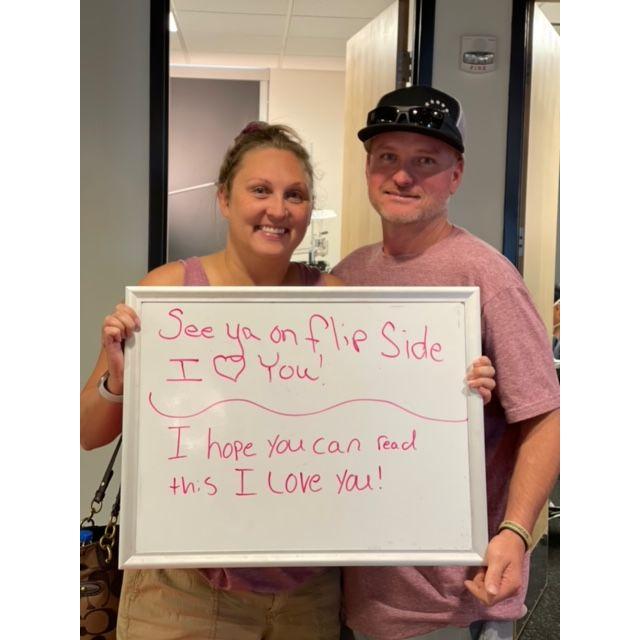 FIRE
See ya on flip Side
I ♡ You!
I hope you can read
this I Love you!